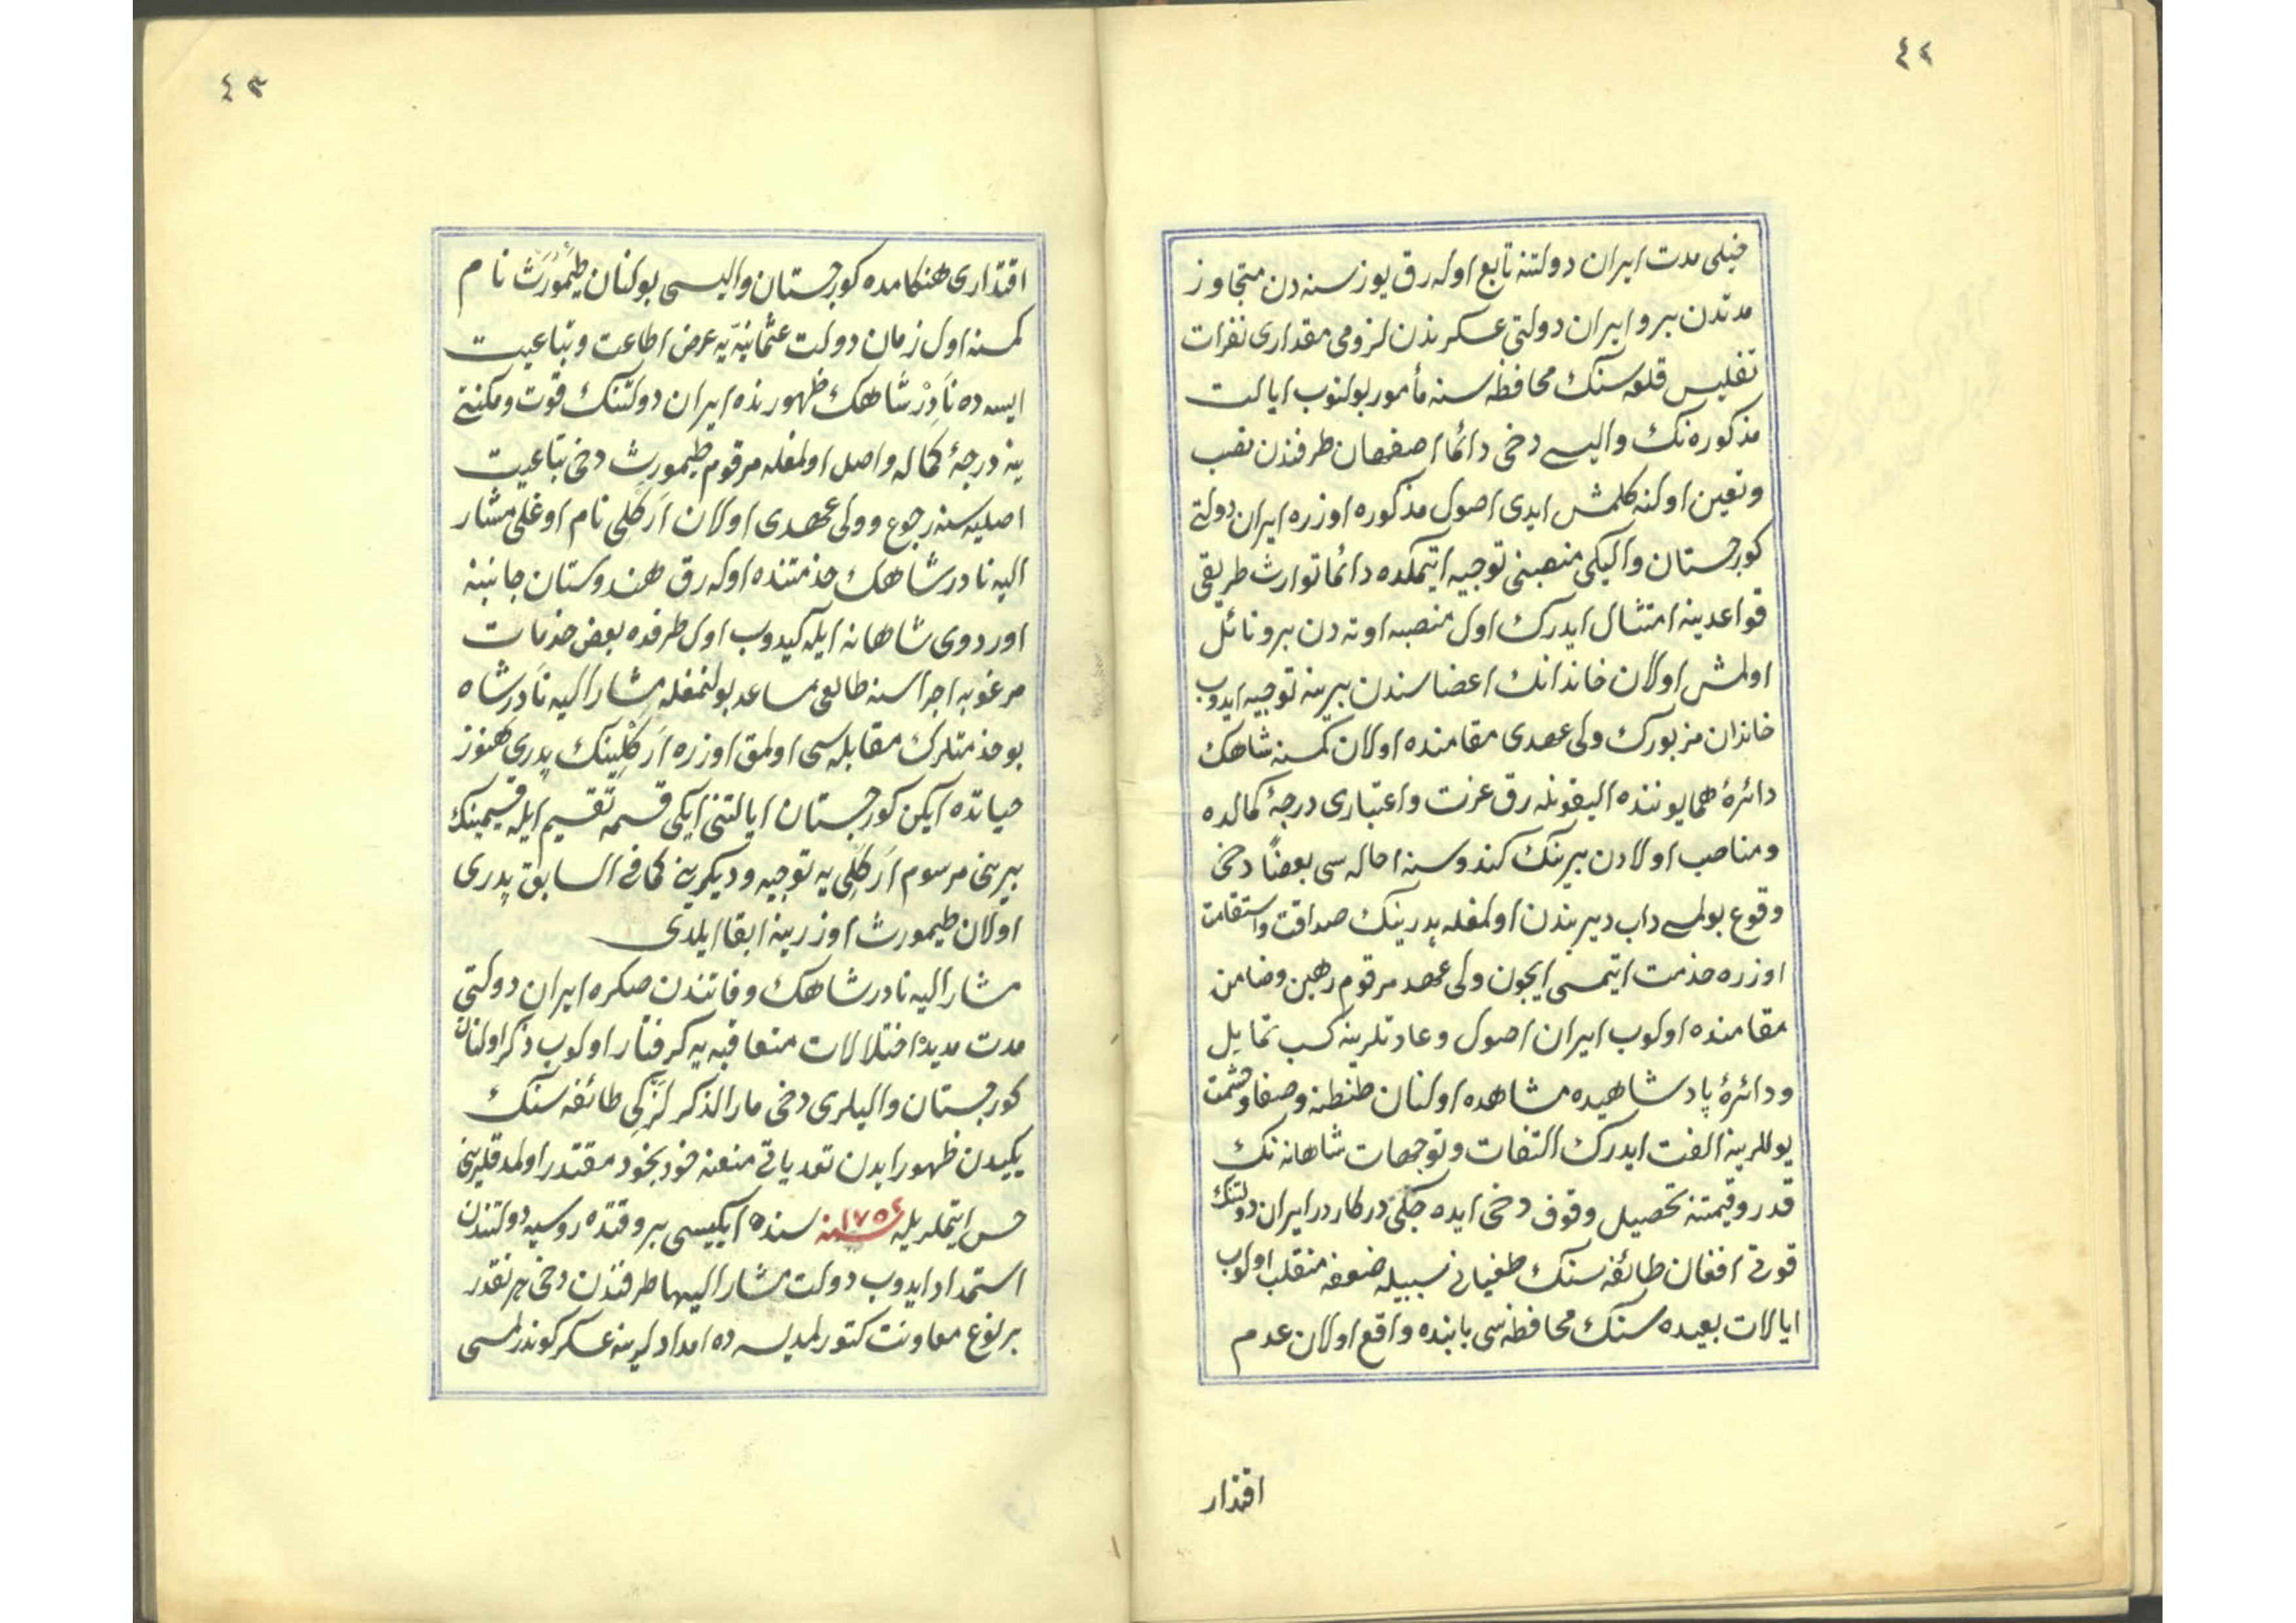 ٤٢
خیلی مدت ایران دولتنه تابع اوله رق یوز سنه دن متجاوز
مدتدن برو ایران دولتی عسکرندن لزومی مقداری نفرات
تفلیس قلعه سنک محافظه سنه مأمور بولنوب ایالت
مذکوره نک والیسی دخی دائما اصفهان طرفندن نصب
وتعین اولنه کلمش ایدی اصول مذکوره اوزره ایران دولتی
کورجستان والیلکی منصبنی توجیه ایتمکده دائما توارث طریقی
قواعدینه امتثال ایدرک اول منصبه اوته دن برو نائل
اولمش اولان خاندانک اعضاسندن بیرینه توجیه ایدوب
خاندان مزبورک ولی عهدی مقامنده اولان کمسنه شاهک
دائرهٔ همایوننده الیقونله رق عزت واعتباری درجهٔ کمالده
ومناصب اولادن بیرینک کندوسنه احاله سی بعضاً دخی
وقوع بولمسی داب دیریندن اولمغله پدرینک صداقت واستقامت
اوزره خدمت ایتمسی ایچون ولی عهد مرقوم رهین وضامن
مقامنده اولوب ایران اصول وعادتلرینه کسب تمایل
ودائرهٔ پادشاهیده مشاهده اولنان طنطنه وصفا وحشمت
یوللرینه الفت ایدرک التفات وتوجهات شاهانه نک
قدر وقیمتنه تحصیل وقوف دخی ایده جکی درکاردر ایران دولتنک
قوتی افغان طائفه سنک طغیانی سببیله ضعفه منقلب اولوب
ایالات بعیده سنک محافظه سی بابنده واقع اولان عدم
اقتدار
٤٣
اقتداری هنکامده کورجستان والیسی بولنان طَیْمُورَث نام
کمسنه اول زمان دولت عثمانیّه یه عرض اطاعت وتباعیت
ایسه ده نَادِرْ شَاهک ظهورنده ایران دولتنک قوت ومکنتی
ینه درجهٔ کماله واصل اولمغله مرقوم طیمورث دخی تباعیت
اصلیه سنه رجوع وولی عهدی اولان اَرَکْلی نام اوغلی مشار
الیه نادر شاهک خدمتنده اوله رق هندوستان جانبنه
اوردوی شاهانه ایله کیدوب اول طرفده بعض خدمات
مرغوبه اجراسنه طالعی مساعد بولنمغله مشار الیه نَادر شاه
بو خدمتلرک مقابله سی اولمق اوزره اَرَکْلینک پدری هنوز
حیاتده ایکن کورجستان ایالتنی ایکی قسمه تقسیم ایله قسیمینک
بیرینی مرسوم اَرَکْلی یه توجیه ودیکرینی کما فی السابق پدری
اولان طیمورث اوزرینه ابقا ایلدی
مشار الیه نادر شاهک وفاتندن صکره ایران دولتی
مدت مدیده اختلالات متعاقبه یه کرفتار اولوب ذکر اولنان
کورجستان والیلری دخی مار الذکر لَزْکی طائفه سنک
یکیدن ظهور ایدن تعدیاتی منعنه خود بخود مقتدر اولمدقلرینی
حس ایتملریله ١٧٥٤ سنه سنده ایکیسی بر وقتده روسیه دولتندن
استمداد ایدوب دولت مشار الیها طرفندن دخی هر نقدر
بر نوع معاونت کتورلمدیسه ده امدادلرینه عسکر کوندرلمسی